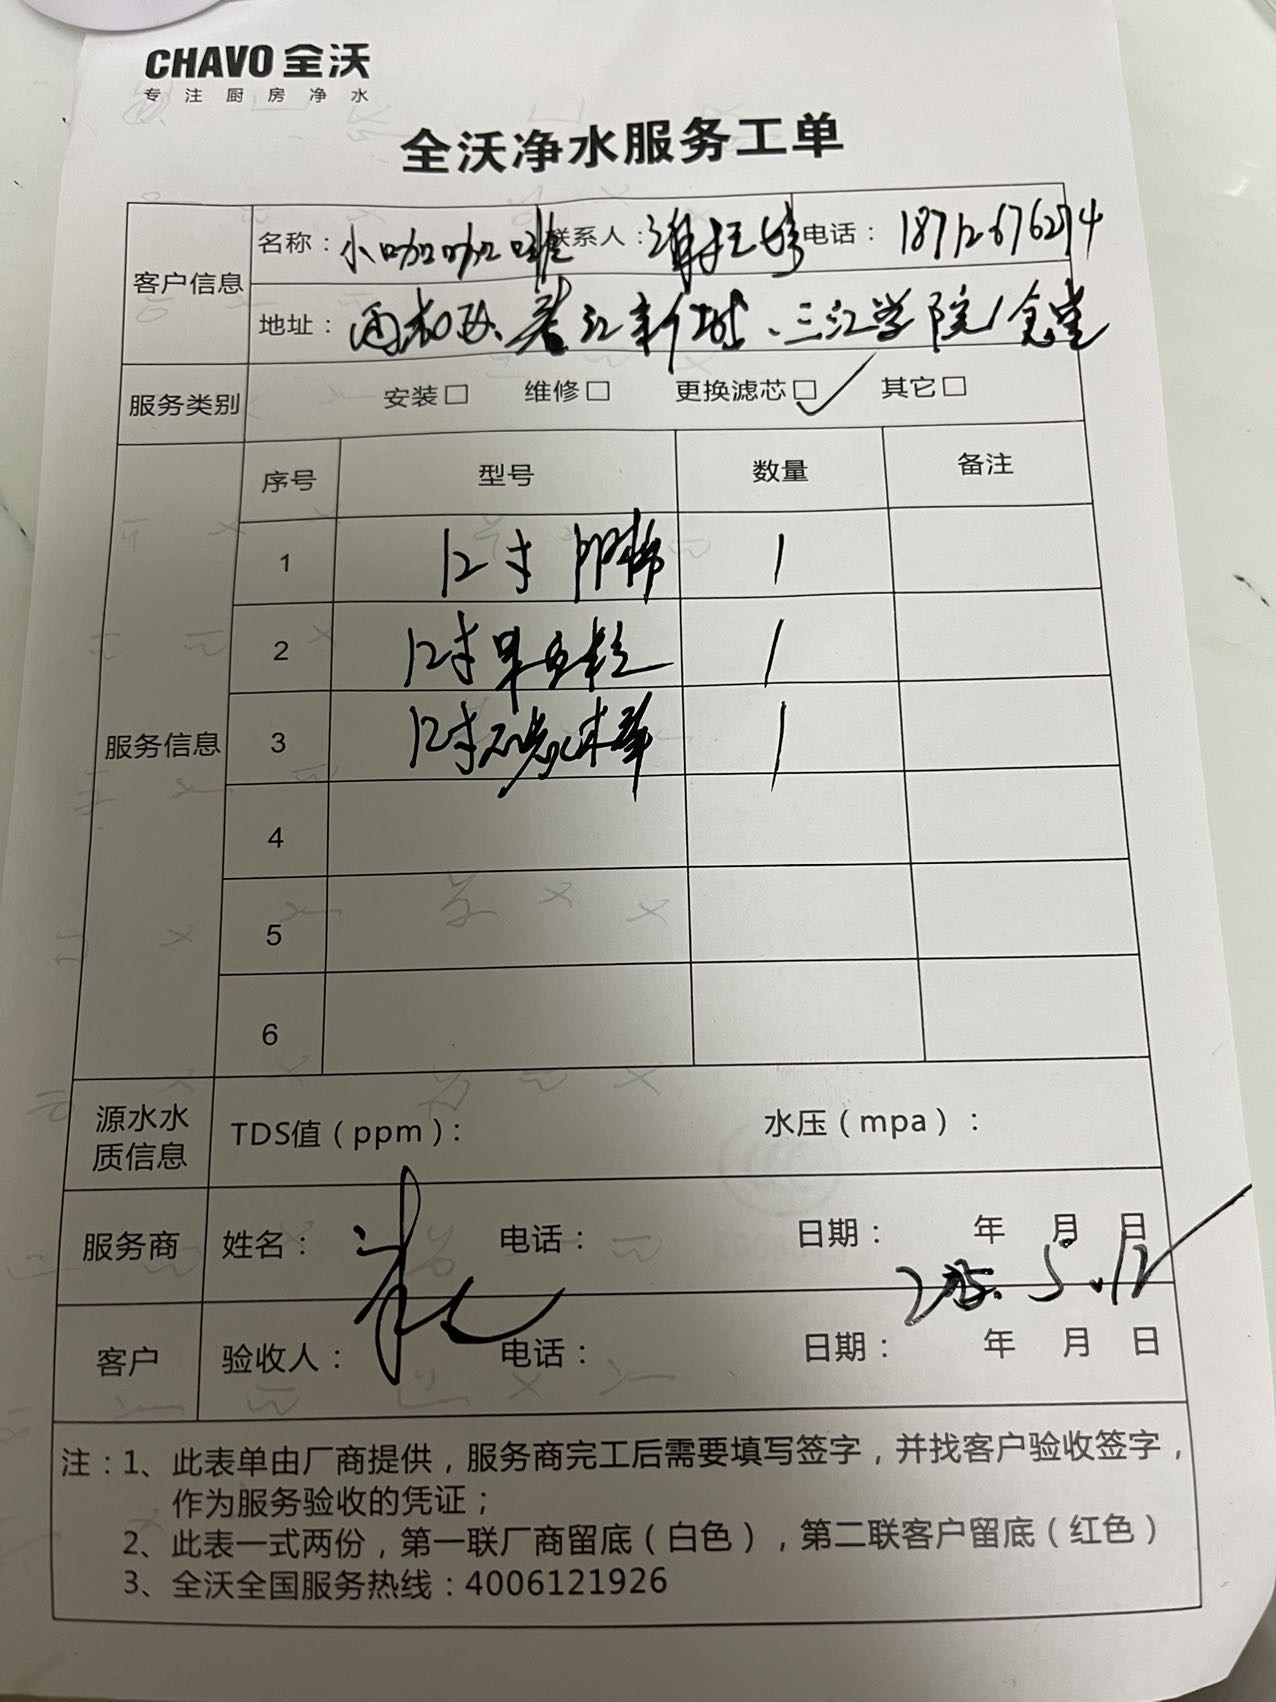 CHAVO 全沃
专注厨房净水
全沃净水服务工单
客户信息
名称：小咖咖啡 联系人： 电话：18712676294
地址： 三江学院1食堂
服务类别 安装□ 维修□ 更换滤芯□✓ 其它□
服务信息
序号 型号 数量 备注
1 12寸PP棉 1
2 12寸 1
3 12寸 1
4
5
6
源水水质信息 TDS值（ppm）： 水压（mpa）：
服务商 姓名： 电话： 日期： 年 月 日
2025.5.12
客户 验收人： 电话： 日期： 年 月 日
注：1、此表单由厂商提供，服务商完工后需要填写签字，并找客户验收签字，
作为服务验收的凭证；
2、此表一式两份，第一联厂商留底（白色），第二联客户留底（红色）
3、全沃全国服务热线：4006121926